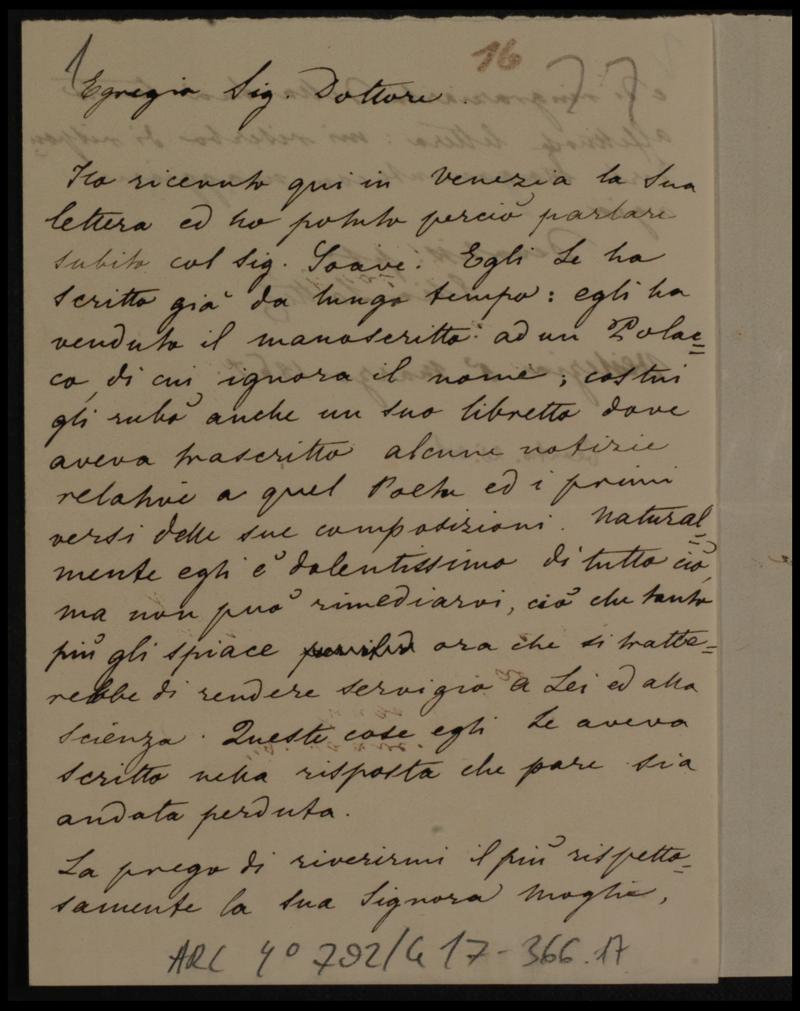 16
Egregio Sig. Dottore.
Ho ricevuto qui in Venezia la Sua
lettera ed ho potuto perciò parlare
subito col Sig. Soave. Egli Le ha
scritto già da lungo tempo: egli ha
venduto il manoscritto ad un Polac=
co, di cui ignora il nome; costui
gli rubò anche un suo libretto dove
aveva trascritto alcune notizie
relative a quel Poeta ed i primi
versi delle sue composizioni. Natural=
mente egli è dolentissimo di tutto ciò,
ma non può rimediarvi, ciò che tanto
più gli spiace ora che si tratte=
rebbe di rendere servigio a Lei ed alla
scienza. Queste cose egli Le aveva
scritto nella risposta che pare sia
andata perduta.
La prego di riverirmi il più rispetto=
samente la Sua Signora Moglie,
ARC 4° 792/G 17-366.17